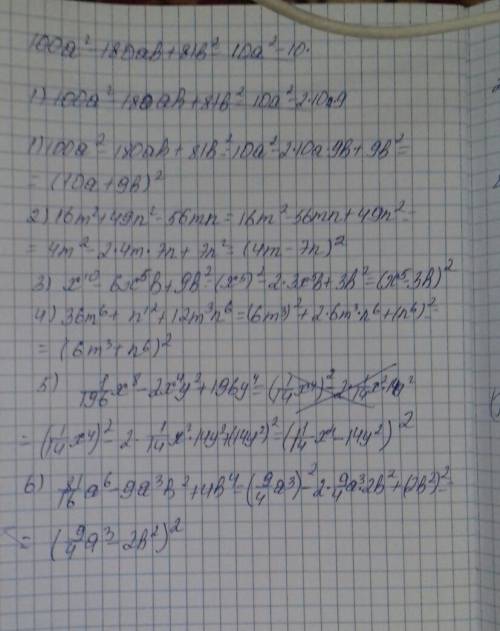 100a² - 180ab + 81b² = 10a² - 10·
1) 100a² - 180ab + 81b² = 10a² - 2·10a·9
1) 100a² - 180ab + 81b² = 10a² - 2·10a·9b + 9b² =
= (10a + 9b)²
2) 16m² + 49n² - 56mn = 16m² - 56mn + 49n² =
= 4m² - 2·4m·7n + 7n² = (4m - 7n)²
3) x¹⁰ - 6x⁵b + 9b² = (x⁵)² - 2·3x⁵b + 3b² = (x⁵ - 3b)²
4) 36m⁶ + n¹² + 12m³n⁶ = (6m³)² + 2·6m³·n⁶ + (n⁶)² =
= (6m³ + n⁶)²
5) 1/196 x⁸ - 2x⁴y² + 196y⁴ = (1/14 x⁴)² - 2·1/14 x²·14y²
= (1/14 x⁴)² - 2·1/14 x²·14y² + (14y²)² = (1/14 x⁴ - 14y²)²
6) 81/16 a⁶ - 9a³b² + 4b⁴ = (9/4 a³)² - 2·9/4 a³·2b² + (2b²)² =
= (9/4 a³ - 2b²)²